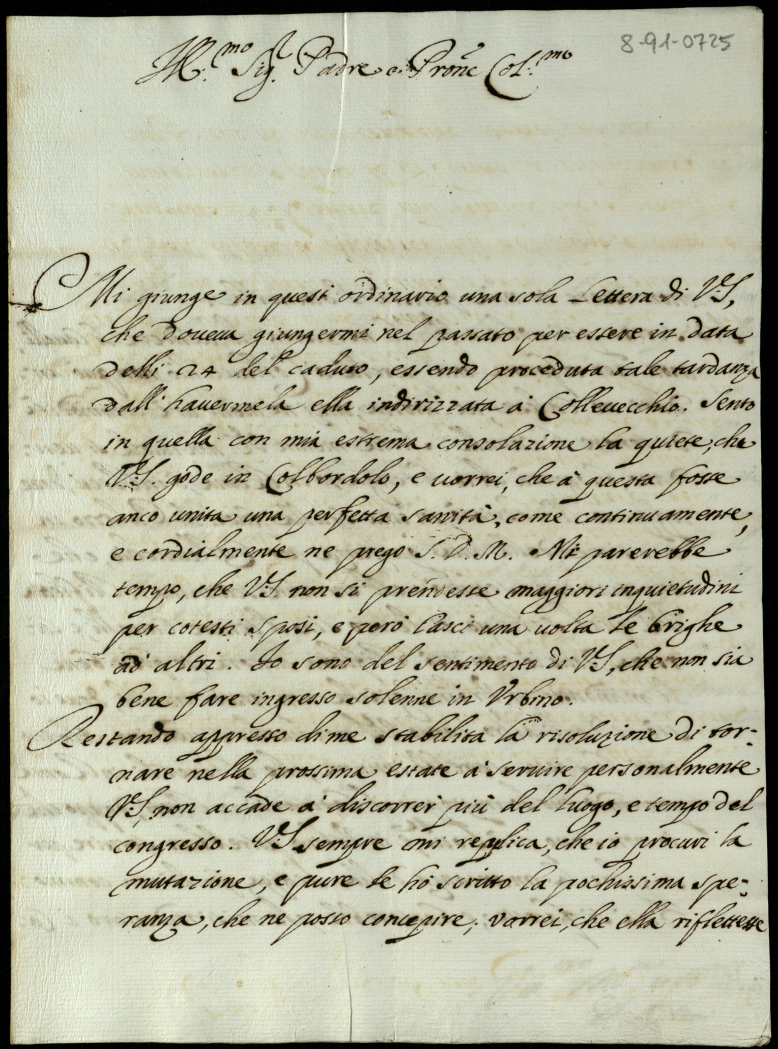 8-91-0725
Ill.mo Sig.r Padre e Pron.e Col.mo
Mi giunge in questi ordinario una sola Lettera di V.S,
che doveva giungermi nel passato per essere in data
delli 24 del caduto, essendo proceduta tale tardanza
dall' havermela ella indirizzata à Collevecchio. Sento
in quella con mia estrema consolazione la quiete, che
V.S. gode in Colbordolo, e vorrei, che à questa fosse
anco unita una perfetta sanità, come continuamente,
e cordialmente ne prego S.D.M. Mi parerebbe
tempo, che V.S non si prendesse maggiori inquietudini
per cotesti sposi, e però lasci una volta le brighe
ad altri. Io sono del sentimento di V.S, che non sia
bene fare ingresso solenne in Urbino.
Restando appresso di me stabilita la risoluzione di tor-
nare nella prossima estate à servire personalmente
V.S, non accade à discorrer più del luogo, e tempo del
congresso. V.S sempre mi replica, che io procuri la
mutazione, e pure le hò scritto la pochissima spe-
ranza, che ne posso concepire; vorrei, che ella riflettesse